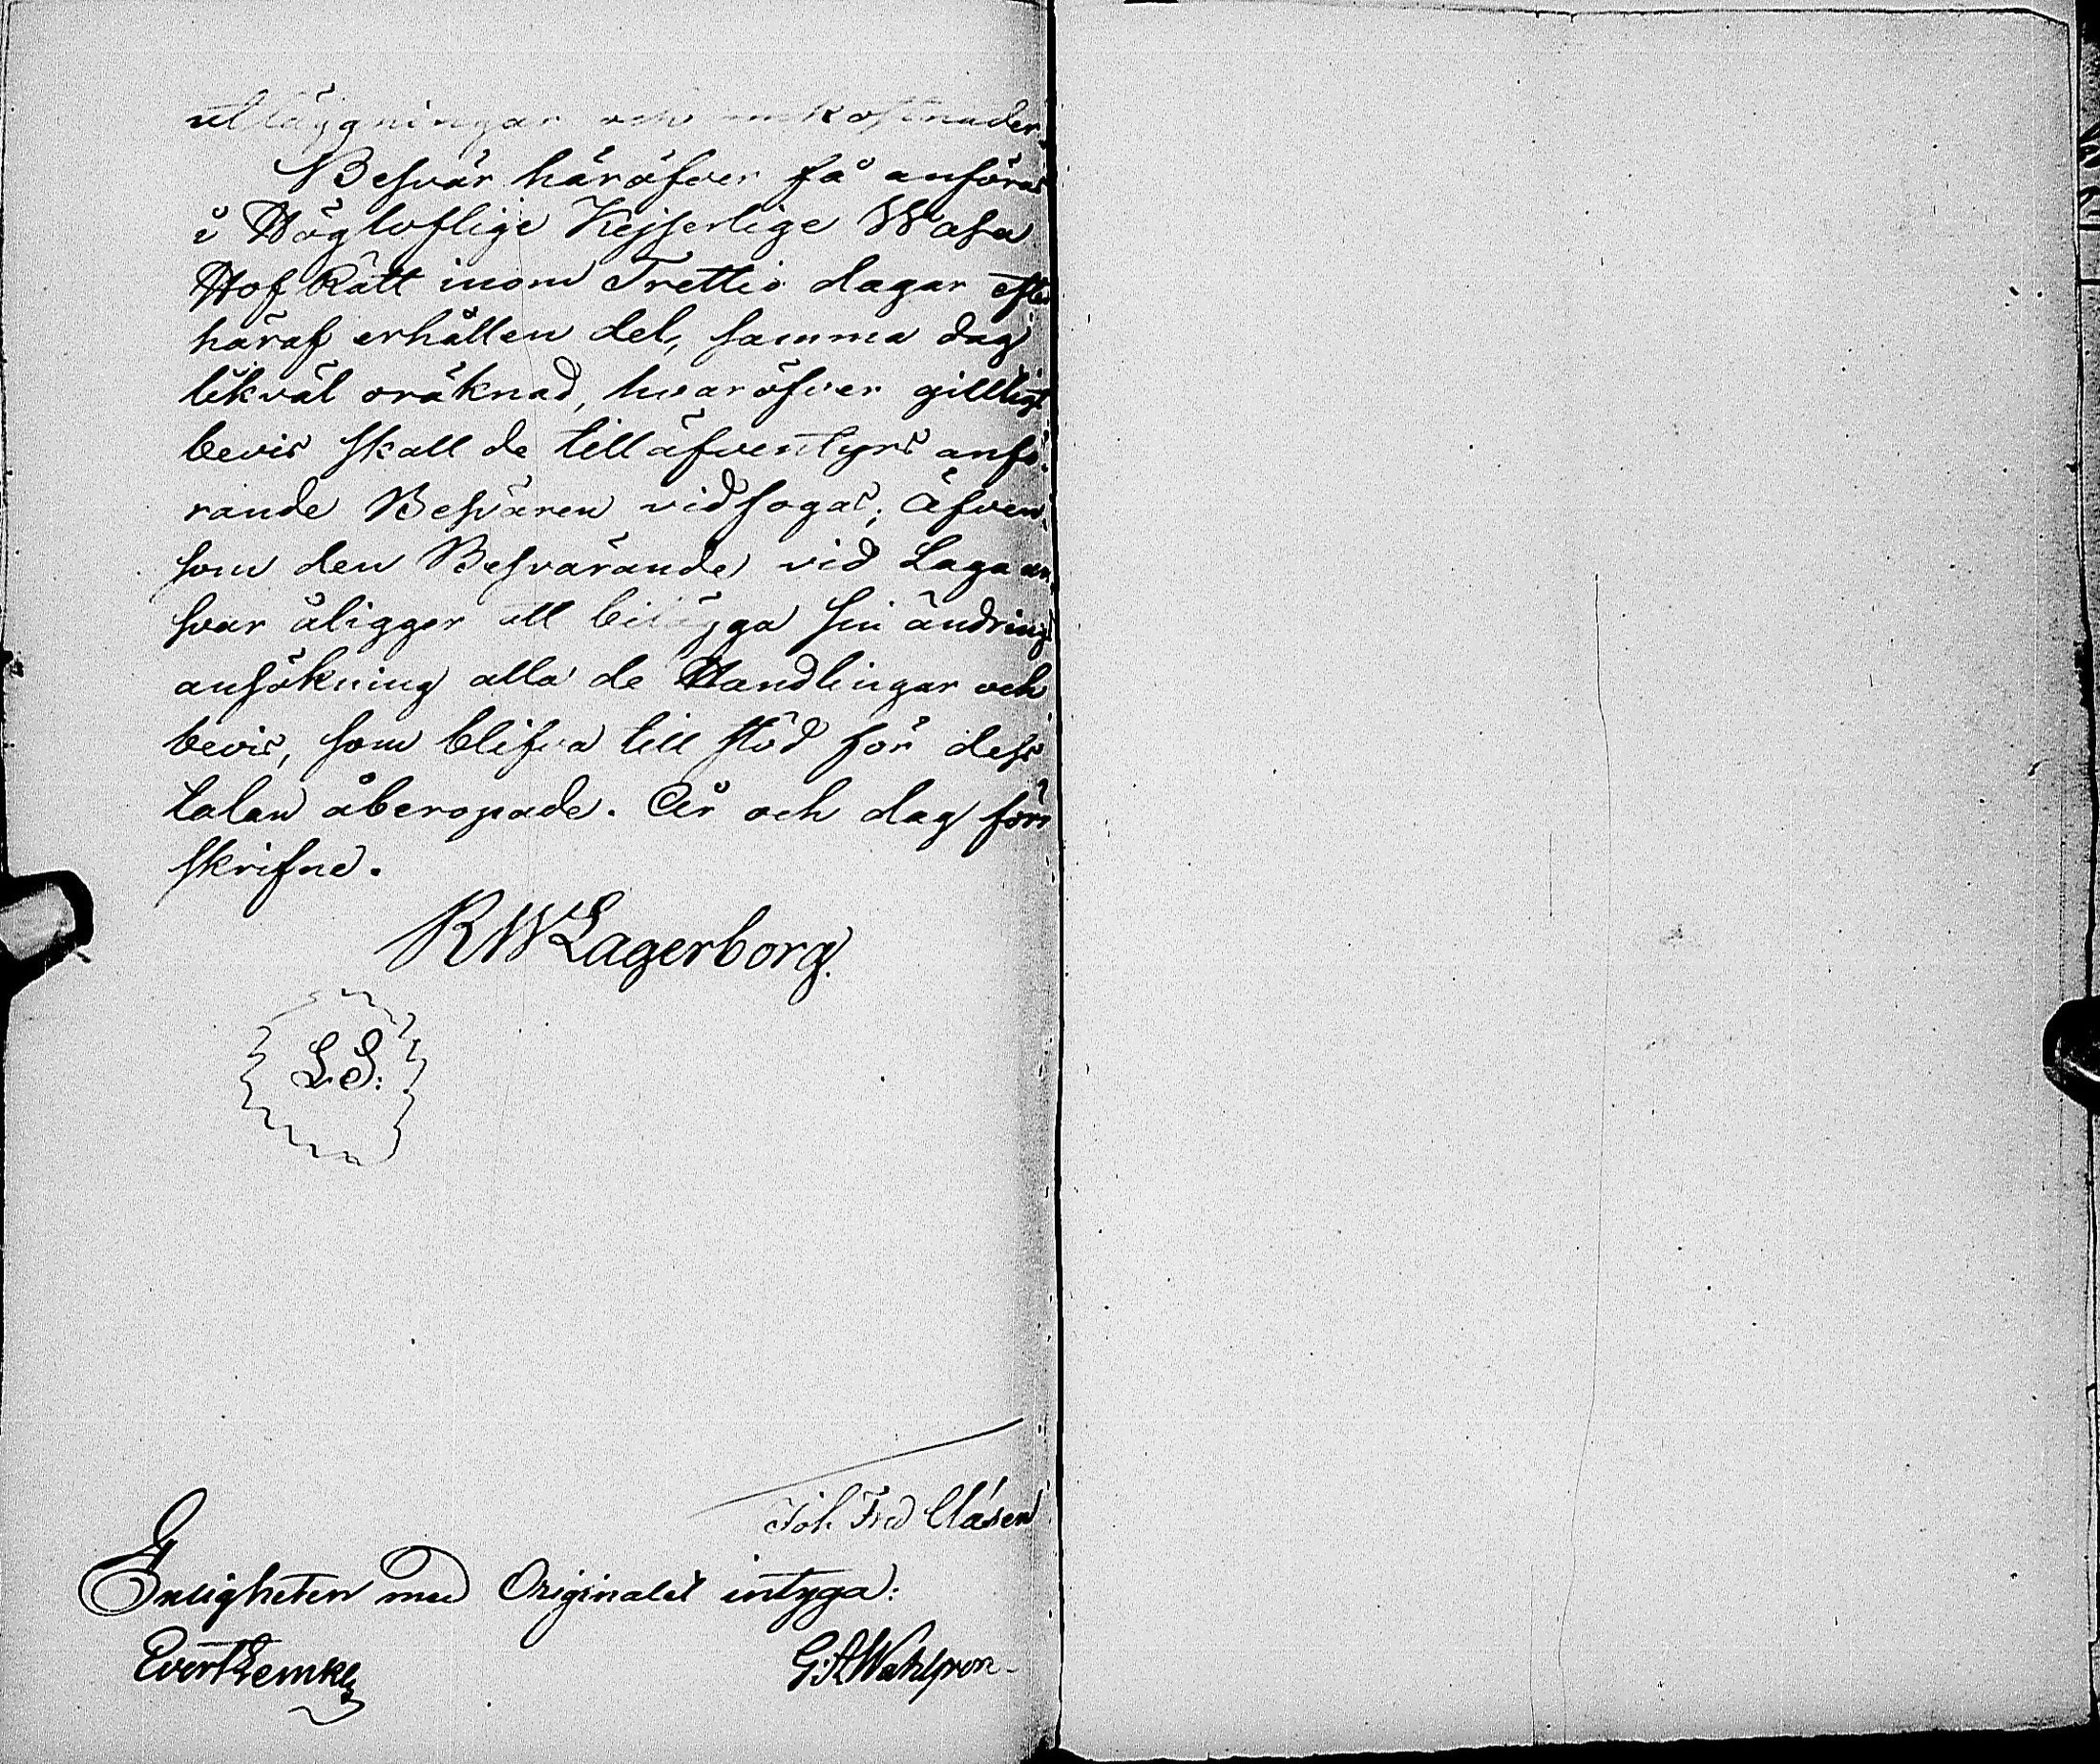 utläggningar och omkostnader.
Besvär häröfver få anföras
i Högloflige Kejserlige Wasa
Hof Rätt inom Trettio dagar efter
häraf erhållen del, samma dag
likväl oräknad, hvaröfver gilltigt
bevis skall de till äfventyrs anfö-
rande Besvären vidfogas; äfven-
som den Besvärande vid Laga an-
svar åligger att bilägga sin ändrings
ansökning alla de Handlingar och
bevis, som blifva till stöd för dess
talan åberopade. År och dag förr
skrifne.
RWLagerborg.
L.S:
Joh Fred Clásen
Enligheten med Originalet intyga:
Evert Lemke
G:A Wahlgren